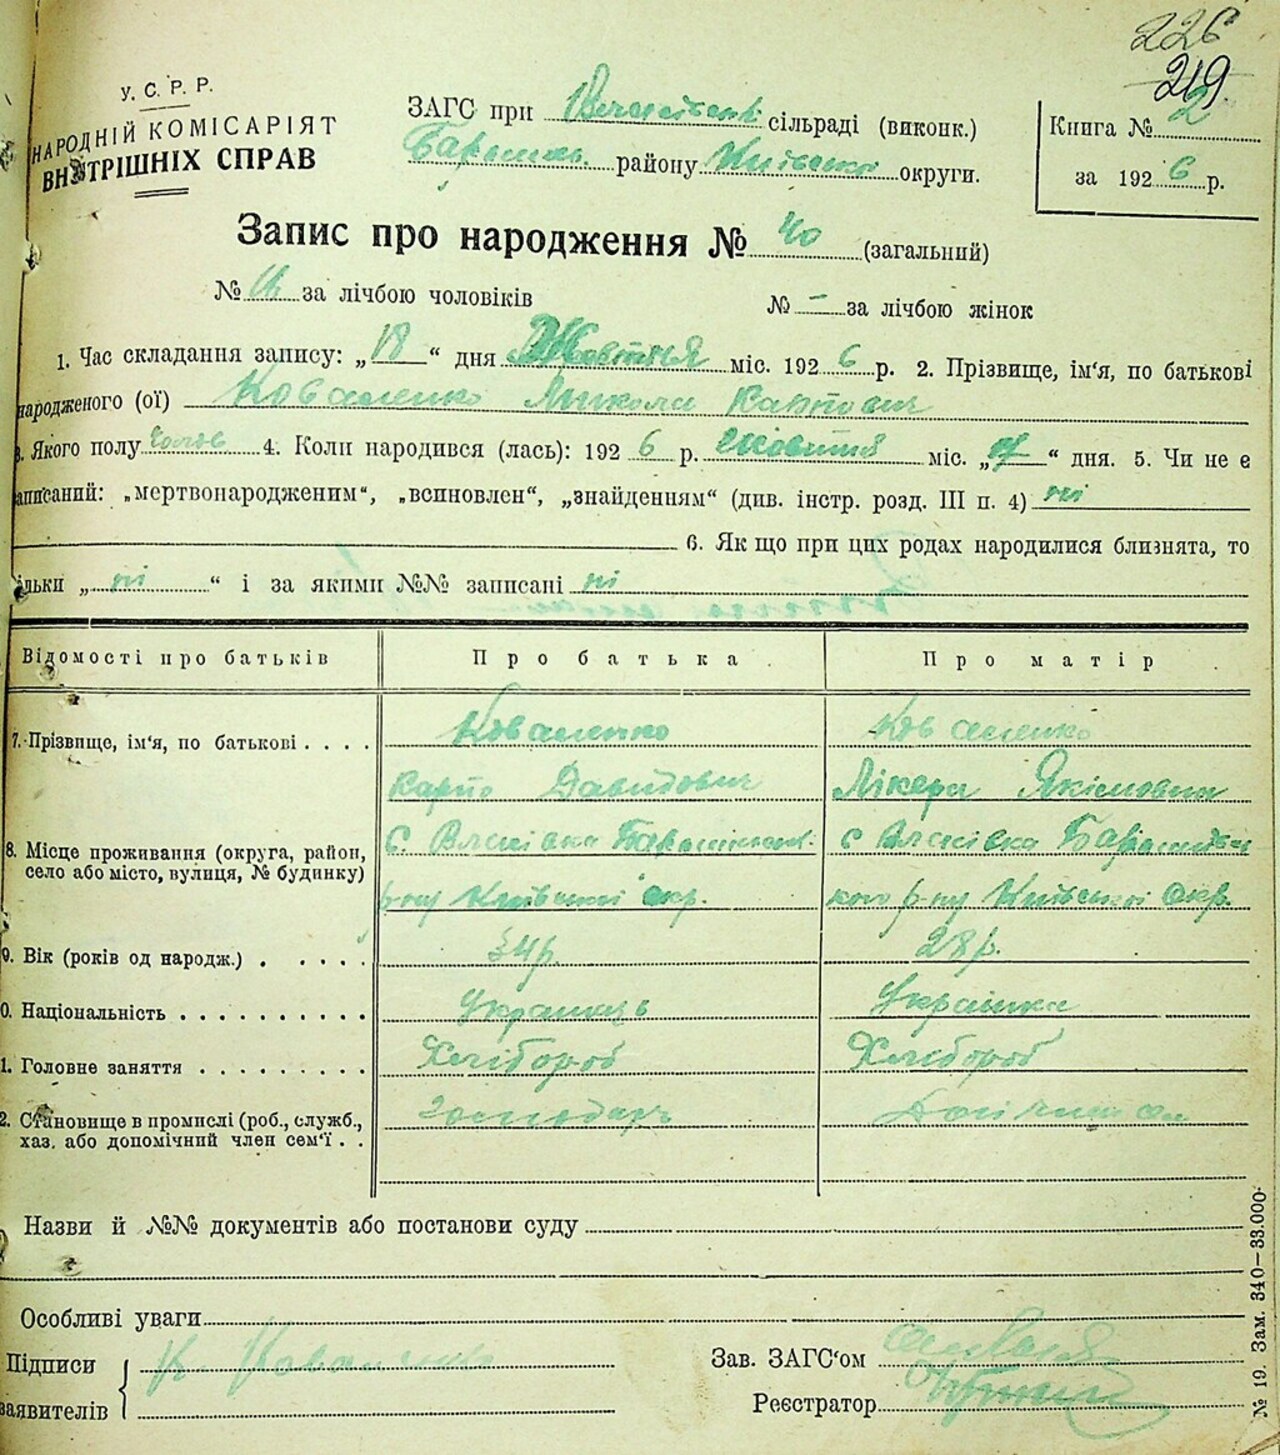 226
219
У. С. Р. Р.
НАРОДНІЙ КОМІСАРІЯТ
ВНУТРІШНІХ СПРАВ
ЗАГС при сільраді (виконк.)
району Київської округи.
Книга № 2
за 1926 р.
Запис про народження № 40 (загальний)
№ за лічбою чоловіків № – за лічбою жінок
1. Час складання запису: „18“ дня Жовтня міс. 1926 р. 2. Прізвище, ім'я, по батькові
народженого (ої) Коваленко Микола Карпович
3. Якого полу чолов 4. Коли народився (лась): 1926 р. жовтня міс. „ “ дня. 5. Чи не є
записаний: „мертвонародженим“, „всиновлен“, „знайденням“ (див. інстр. розд. III п. 4) ні
6. Як що при цих родах народилися близнята, то
кільки „ні“ і за якими №№ записані ні
Відомості про батьків Про батька Про матір
7. Прізвище, ім'я, по батькові Коваленко Коваленко
Карпо Давидович Лікера Якімовна
8. Місце проживання (округа, район, с Власівка с Власівка
село або місто, вулиця, № будинку) р-ну Київської окр. кого р-ну Київської Окр.
9. Вік (років од народж.) 34р. 28р.
0. Національність Украінець Украінка
1. Головне заняття Хлібороб Хлібороб
2. Становище в промислі (роб., служб., господарь
хаз. або допомічний член сем'ї
Назви й №№ документів або постанови суду
Особливі уваги
Підписи К. Коваленко Зав. ЗАГС'ом
заявителів Реєстратор
№ 19. Зам. 340–33.000.